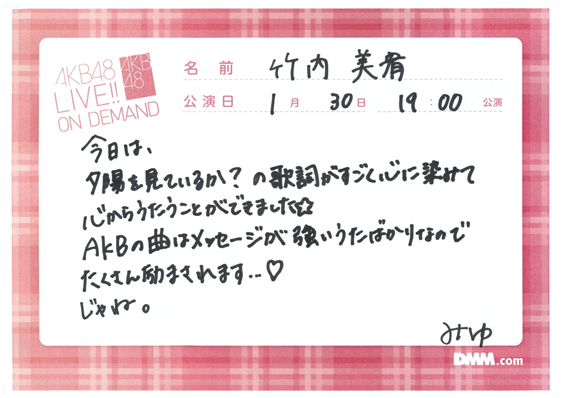 AKB48
LIVE!!
ON DEMAND
AKB
48
名前 竹内 美宥
公演日 1月 30日 19:00 公演
今日は、
夕陽を見ているか？の歌詞がすごく心に染みて
心からうたうことができました☆
AKBの曲はメッセージが強いうたばかりなので
たくさん励まされます…♡
じゃね。
みゆ
DMM.com